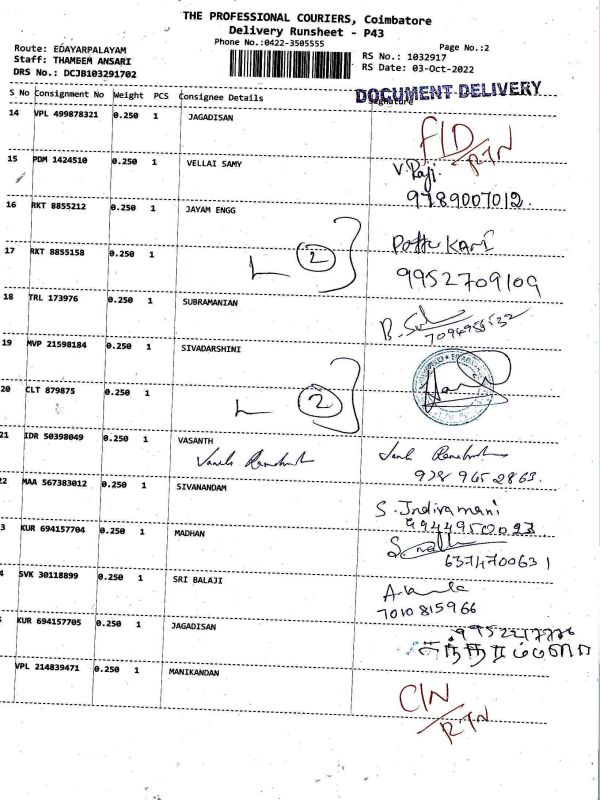 THE PROFESSIONAL COURIERS, Coimbatore
Delivery Runsheet - P43
Phone No.:0422-3505555
Page No.:2
Route: EDAYARPALAYAM
Staff: THAMEEM ANSARI
DRS No.: DCJB103291702
RS No.: 1032917
RS Date: 03-Oct-2022
DOCUMENT DELIVERY
S No Consignment No Weight PCS Consignee Details Signature
14 VPL 499878321 0.250 1 JAGADISAN
FID/RTN
15 PDM 1424510 0.250 1 VELLAI SAMY
V. Raji.
9789007012.
16 RKT 8855212 0.250 1 JAYAM ENGG
2
17 RKT 8855158 0.250 1
9952709109
18 TRL 173976 0.250 1 SUBRAMANIAN
19 MVP 21598184 0.250 1 SIVADARSHINI
20 CLT 879875 0.250 1
2
21 IDR 50398049 0.250 1 VASANTH
978 965 2863.
22 MAA 567383012 0.250 1 SIVANANDAM
S. Indiramani
9944950093
3 KUR 694157704 0.250 1 MADHAN
6374700631
4 SVK 30118899 0.250 1 SRI BALAJI
7010815966
KUR 694157705 0.250 1 JAGADISAN
VPL 214839471 0.250 1 MANIKANDAN
CIN/RTN